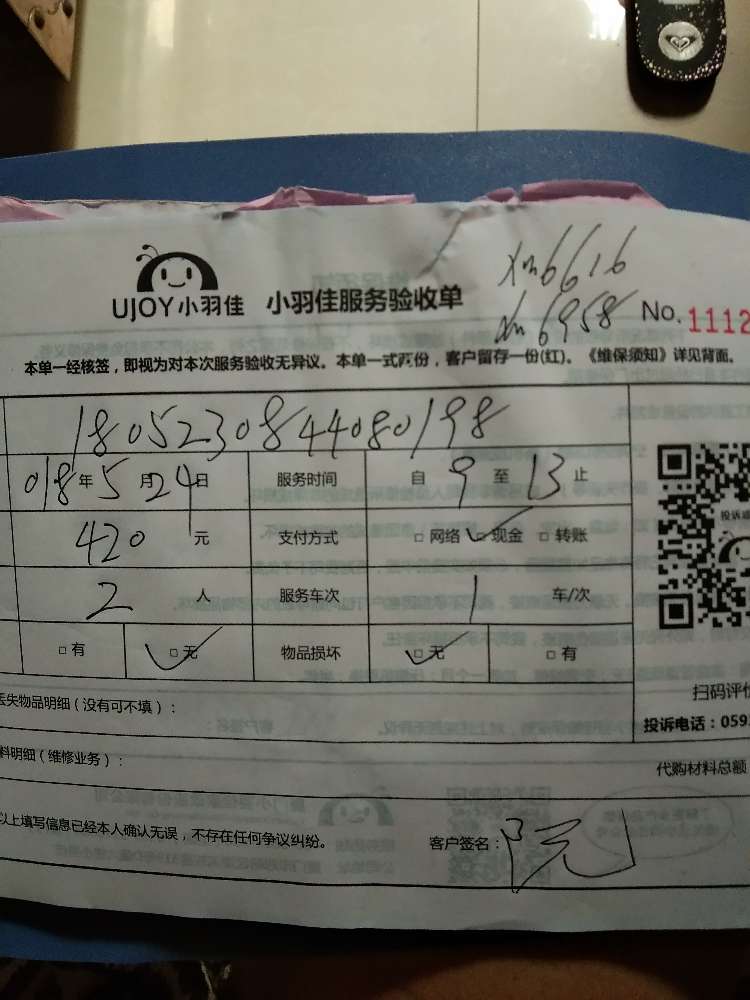 xm6616
xm6958
UJOY小羽佳 小羽佳服务验收单 No. 1112
本单一经核签，即视为对本次服务验收无异议。本单一式两份，客户留存一份(红)。《维保须知》详见背面。
1805230844080198
018年5月24日 服务时间 自 9 至 13 止
420 元 支付方式 □ 网络 □ 现金 □ 转账
2 人 服务车次 1 车/次
□ 有 □ 无 物品损坏 □ 无 □ 有
投诉或
扫码评价
丢失物品明细（没有可不填）：
投诉电话：059
料明细（维修业务）：
代购材料总额
以上填写信息已经本人确认无误，不存在任何争议纠纷。
客户签名：阮